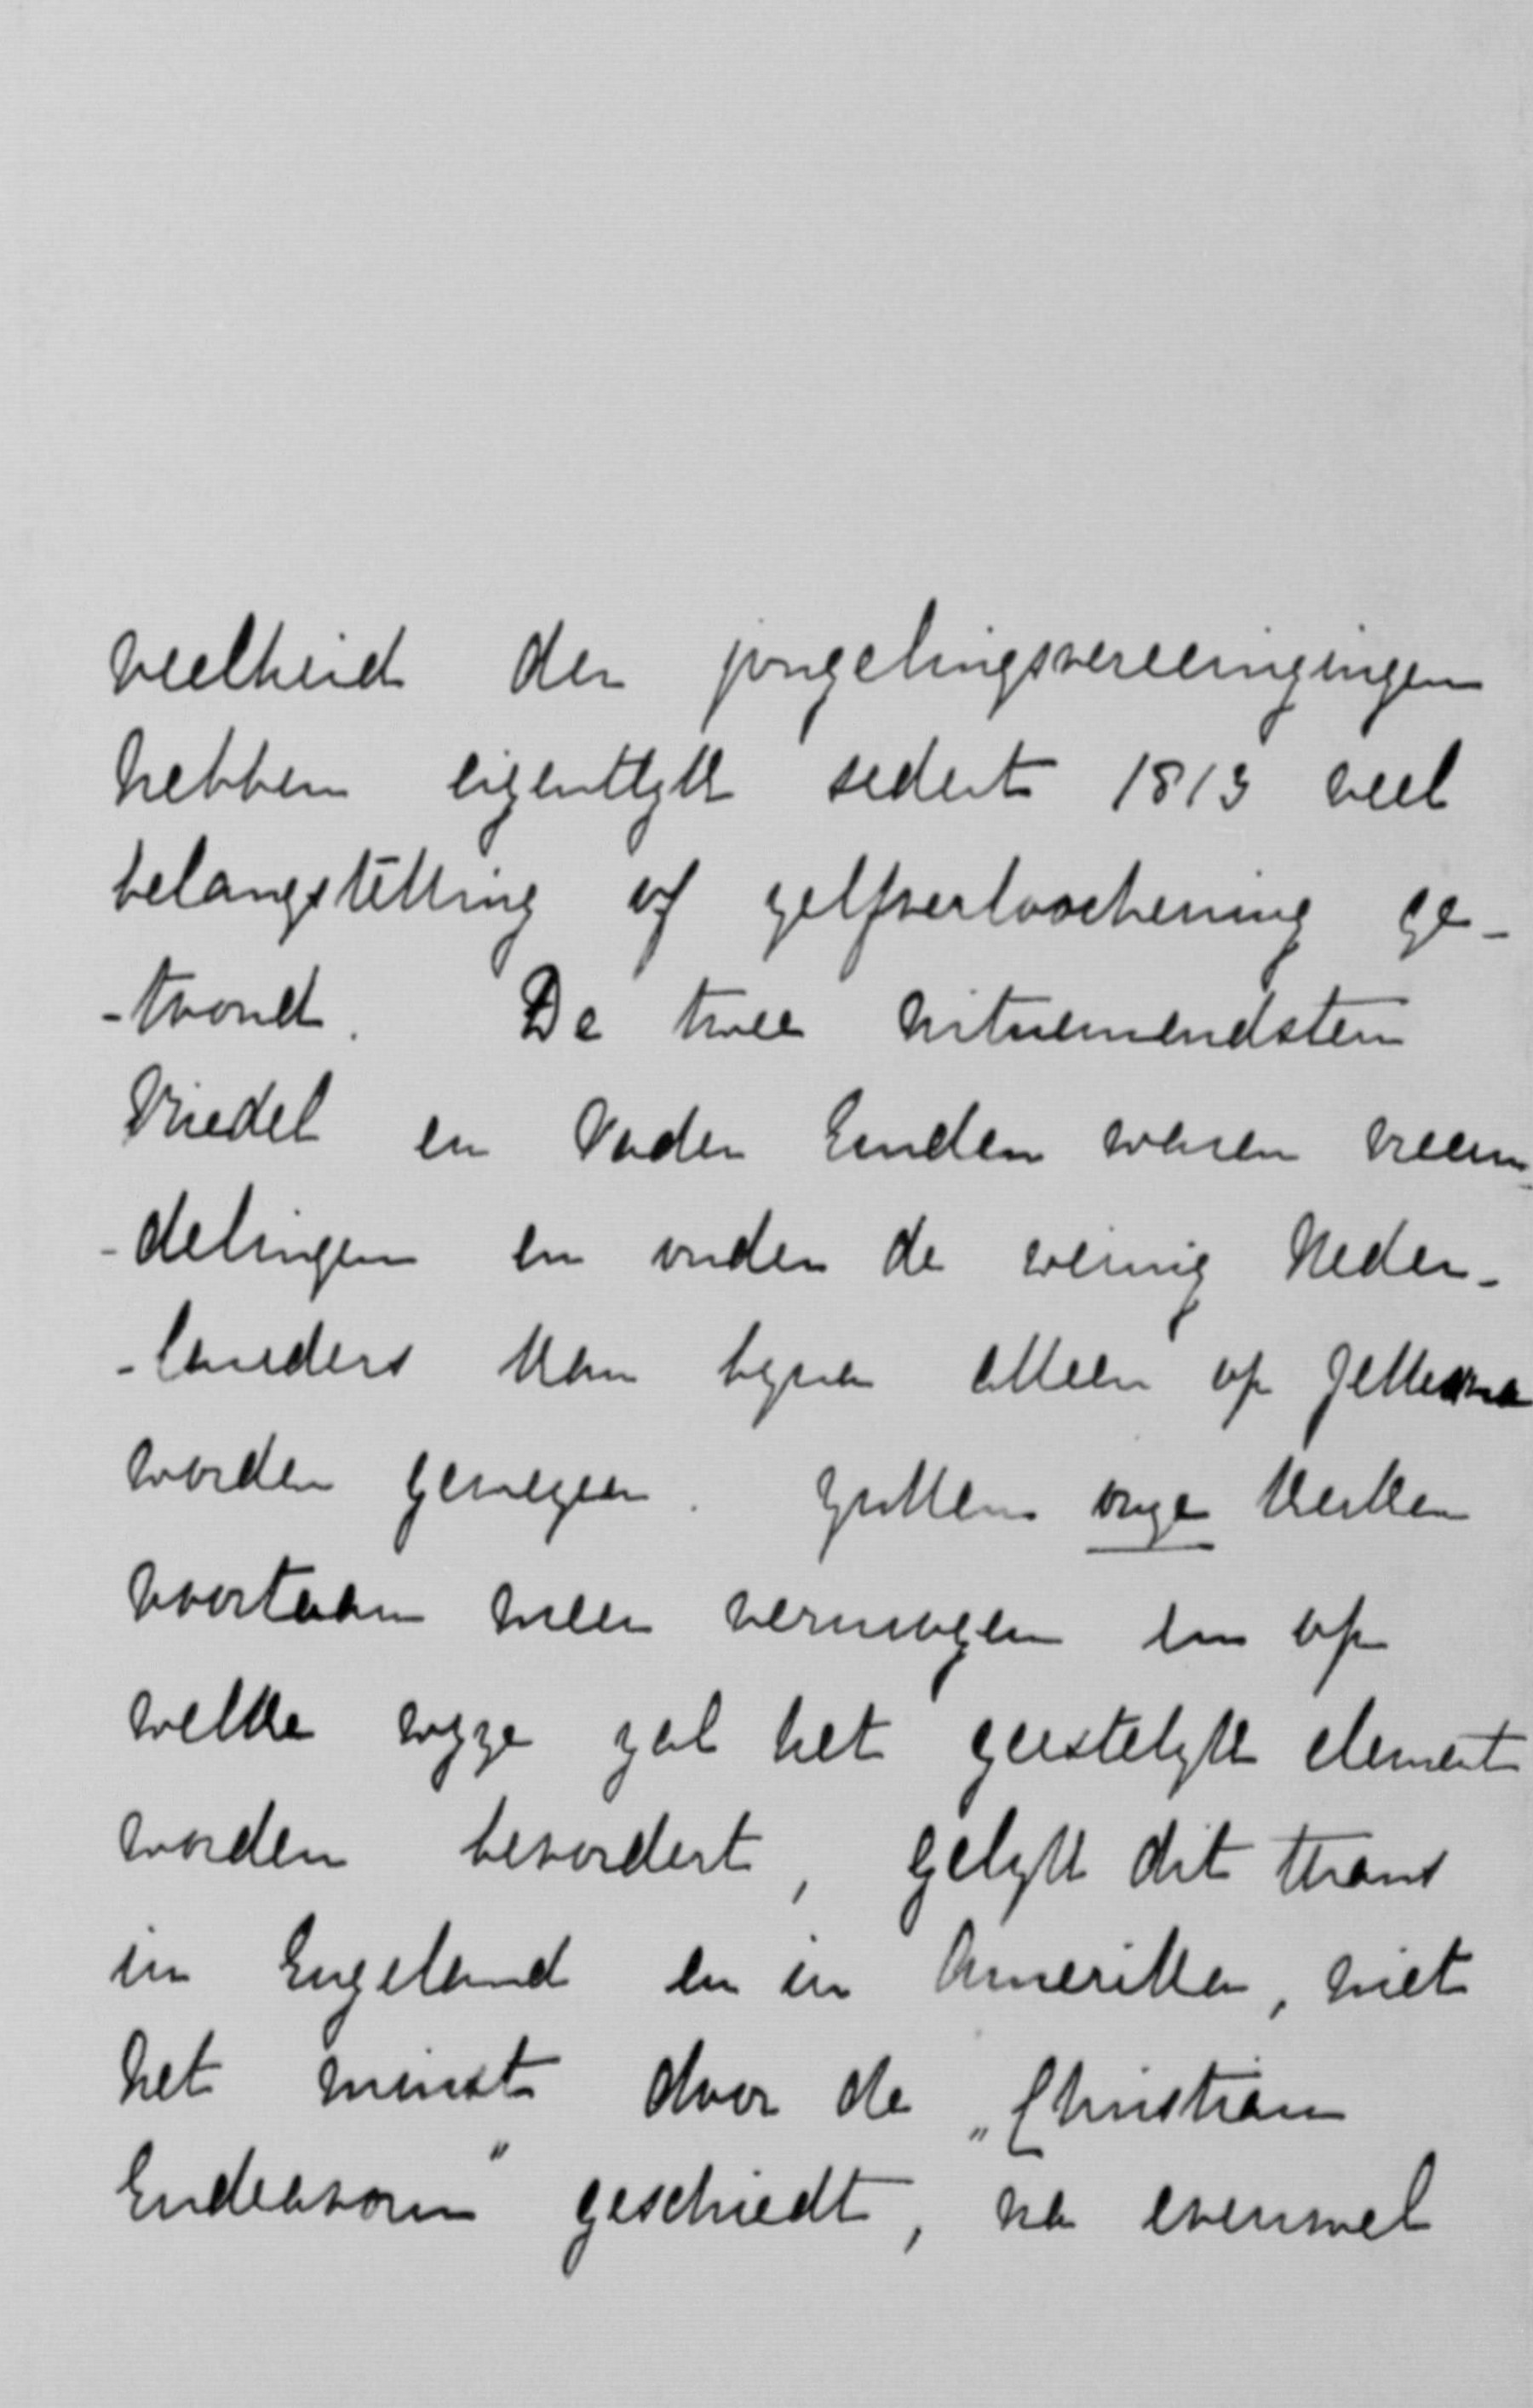 veelheid der jongelingsvereenigingen
hebben eigentlyk sedert 1813 veel
belangstelling of zelfverloochening ge-
-toond. De twee uitnemendsten
Riedel en Vader Emden waren vreem-
-delingen en onder de weinig Neder-
-landers kan byna alleen op Jellesma
worden gewezen. Zullen onze kerken
voortaan meer vermogen en op
welke wyze zal het geestelyk element
worden bevordert, gelyk dit thans
in Engeland en in Amerika, niet
het minst door de „Christian
Endeavour" geschiedt, na evenwel